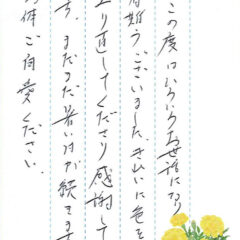 この度はいろいろお世話になり
有難うございました。きれいに色を
より直してくださり感謝して
す。まだまだ暑い日が続きます
お体ご自愛ください。